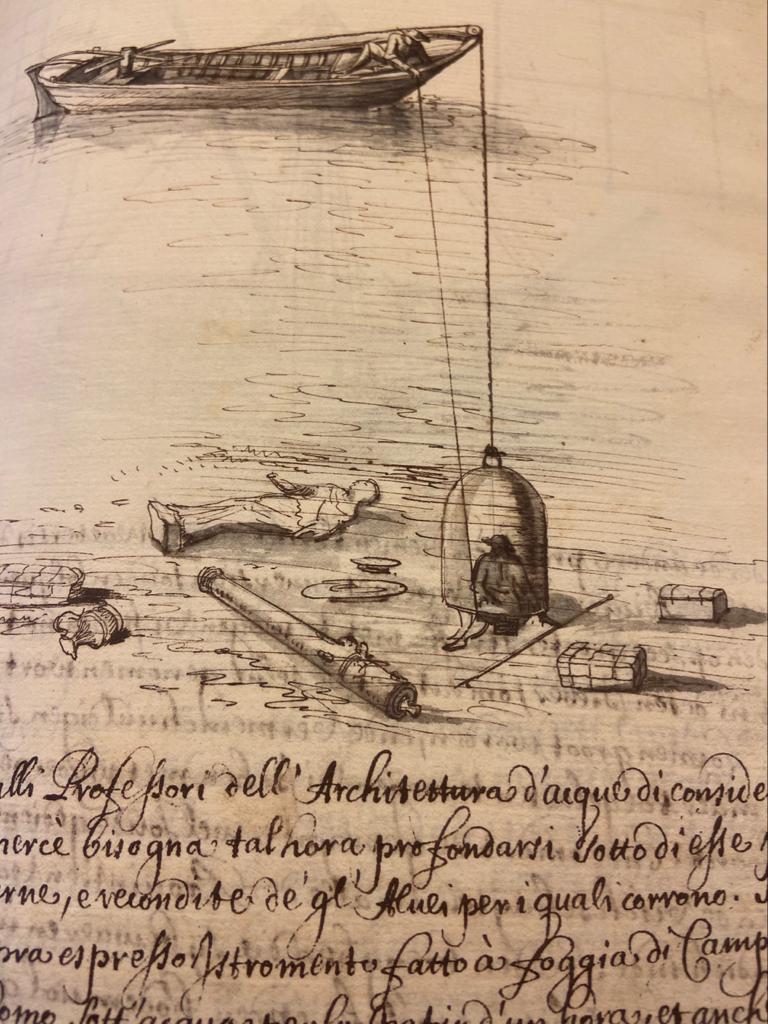 lli Professori dell' Architettura d'acque di conside
mercè bisogna tal'hora profondarsi sotto di esse
rne, e recondite de' gl' Aluei per i quali corrono.
pra espresso Istromento fatto à foggia di Camp
omo sott'acqua per lo spatio d'un hora, et anch